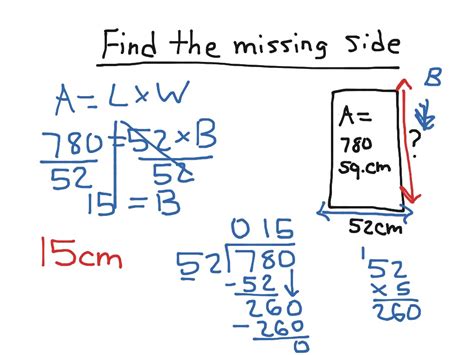 Find the missing side
A = L x W
780 = 52 x B
52 52
15 = B
15cm
B
A =
780
sq.cm
?
52cm
015
52 780
-52
260
-260
0
1
52
x 5
260